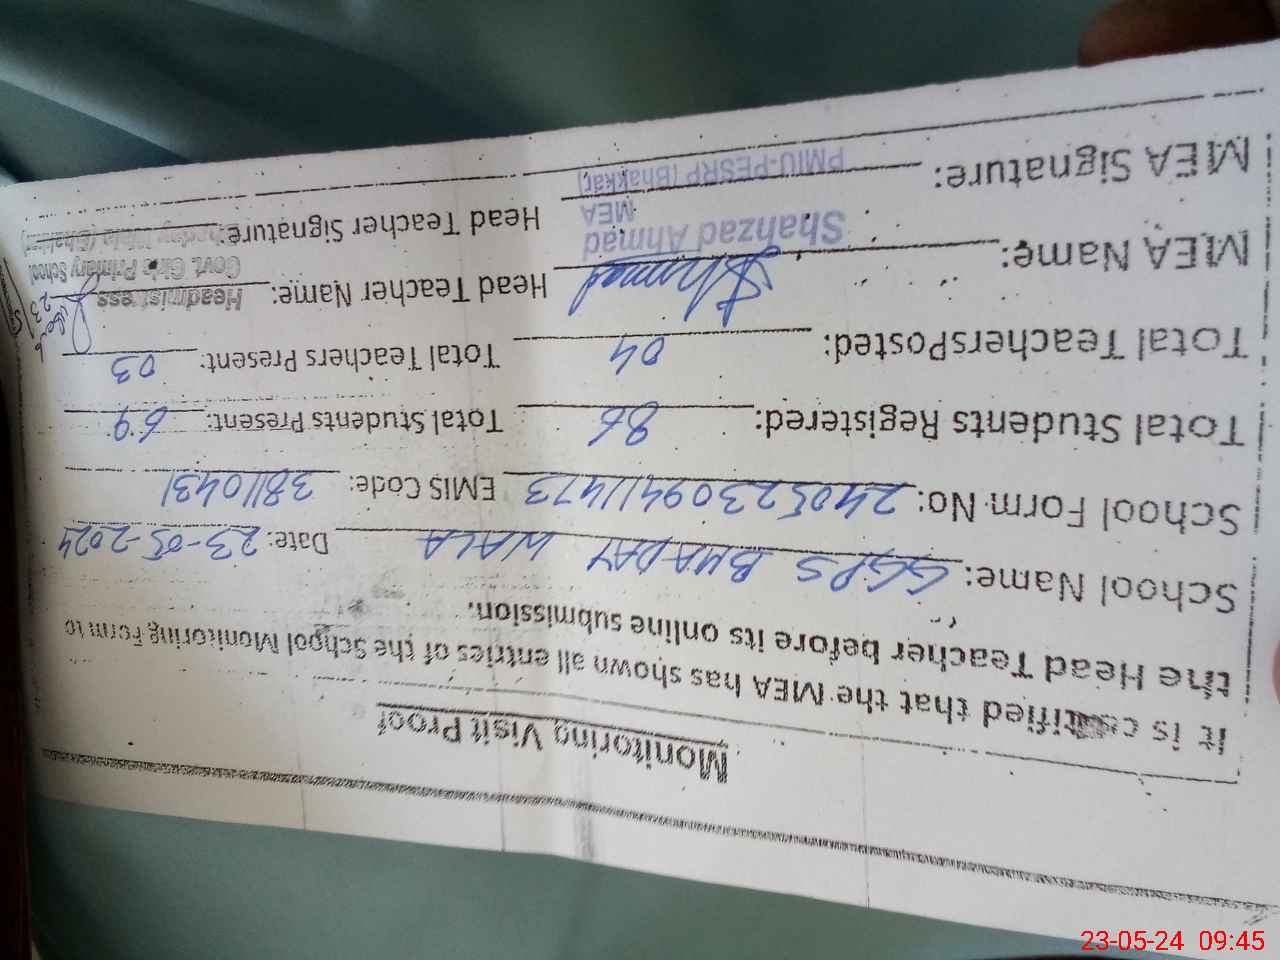 Monitoring Visit Proof
It is certified that the MEA has shown all entries of the School Monitoring Form to
the Head Teacher before its online submission.
School Name: GGPS BHADAY WALA Date: 23-05-2024
School Form No: 24052309411473 EMIS Code: 38110431
Total Students Registered: 86 Total Students Present: 69
Total TeachersPosted: 04 Total Teachers Present: 03
MEA Name: Ahmad Head Teacher Name: Headmistress
Shahzad Ahmad Govt. Girls Primary School
MEA
MEA Signature: PMIU-PESRP (Bhakkar) Head Teacher Signature: (Bhakkar)
23-05-24 09:45